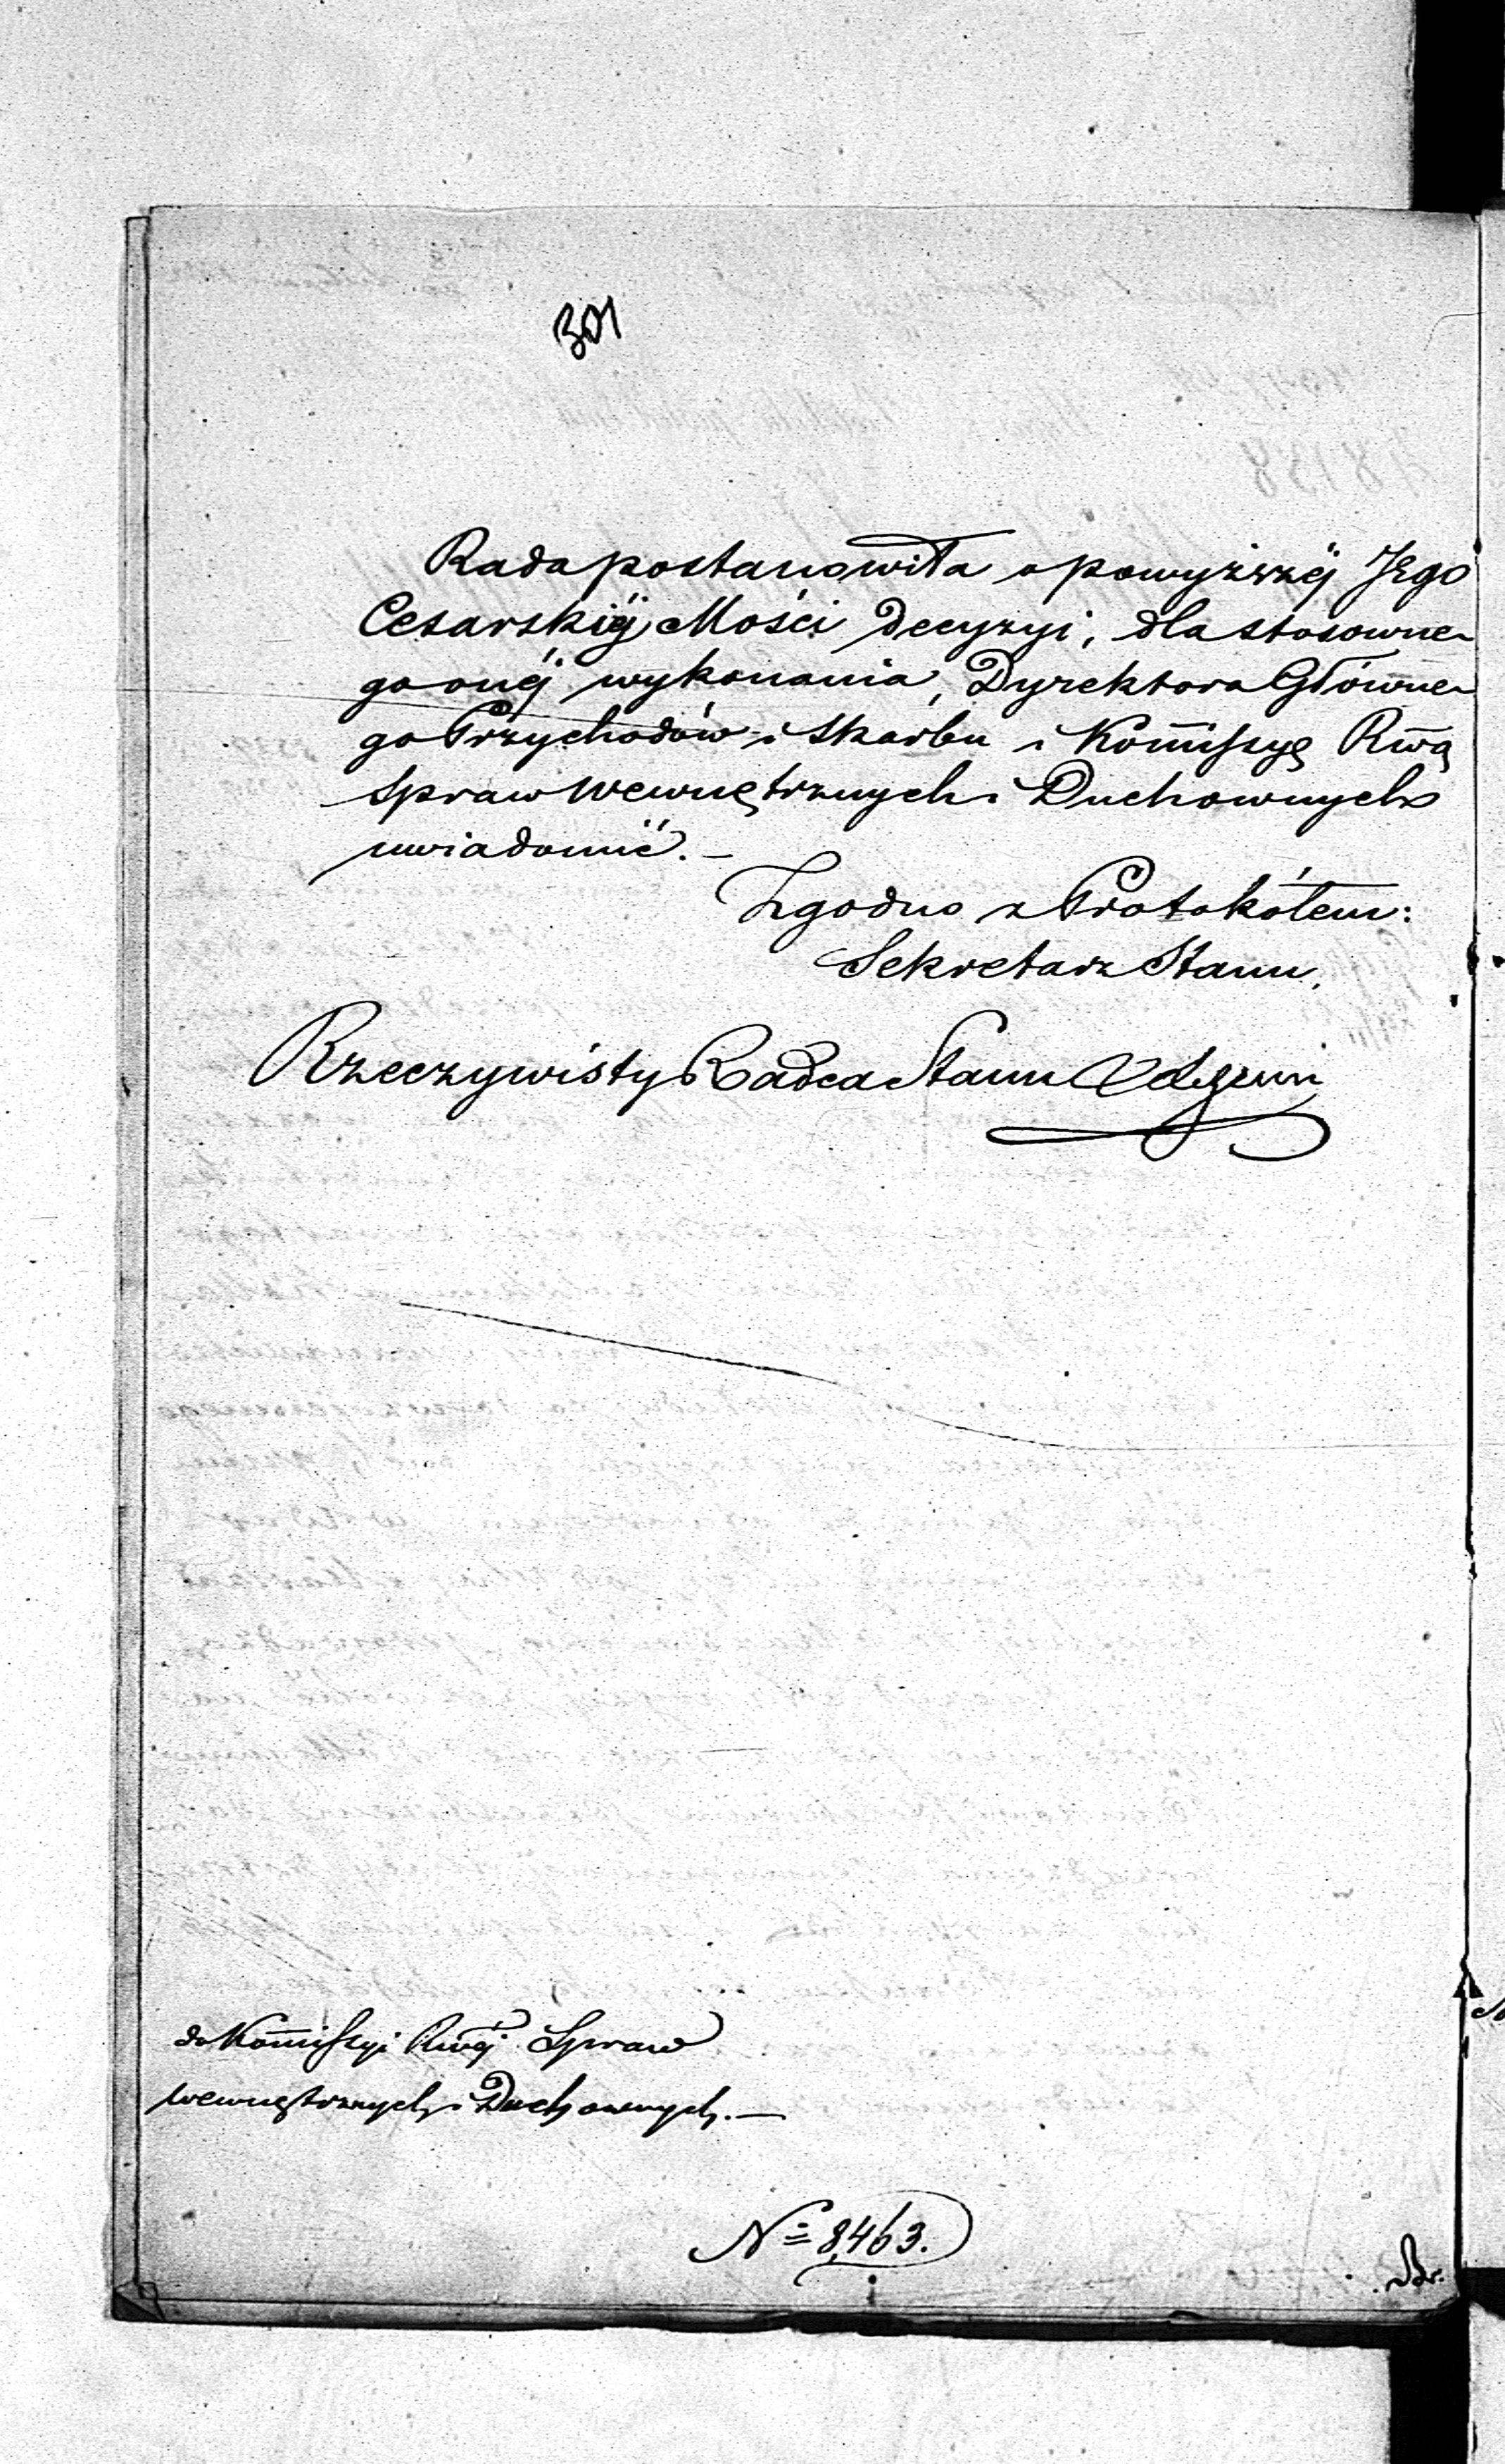 301
Rada postanowiła o powyższéj Jego
Cesarskiéj Mości decyzyi, dla stosowne-
go onéj wykonania, Dyrektora Główne-
go Przychodów i Skarbu i Kom̅issyę Rw̅ą
Spraw Wewnętrznych i Duchownych
uwiadomić. —
Zgodno z Protokółem:
Sekretarz Stanu,
Rzeczywisty Radca Stanu
do Kom̅issyi Rw̅éj Spraw
Wewnętrznych i Duchownych. —
N= 8,463.